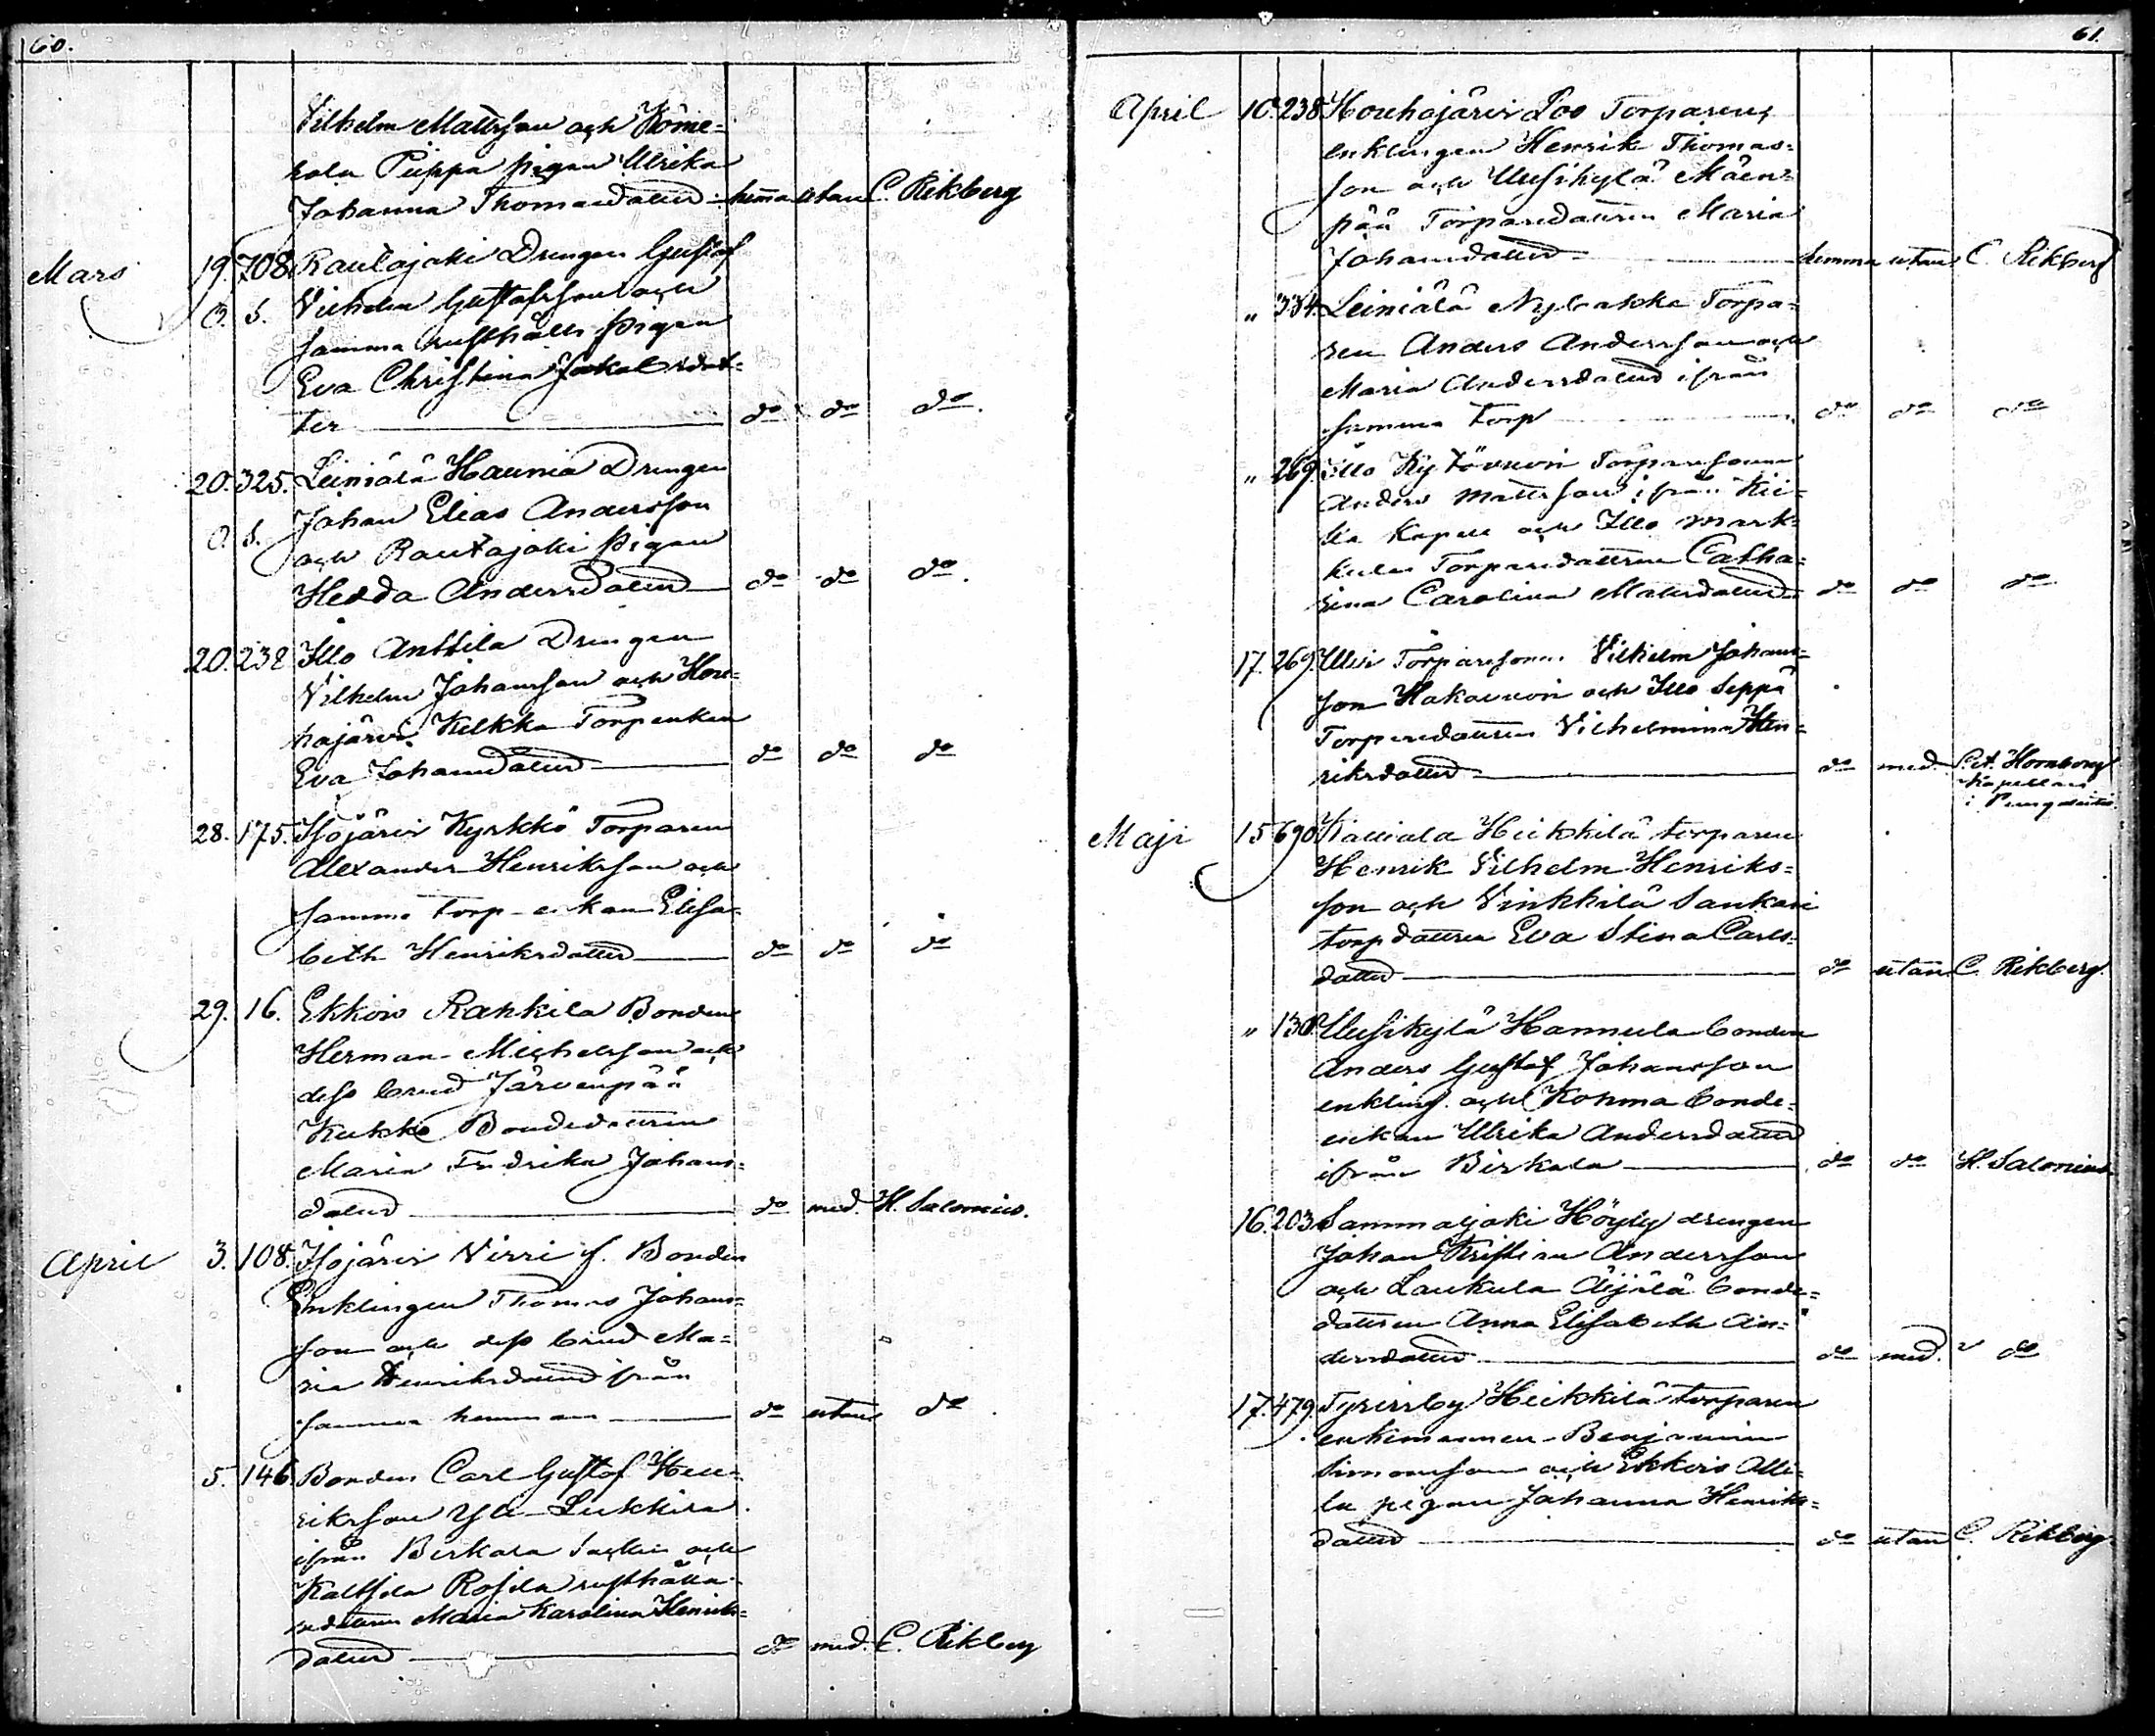 60.
Vilhelm Mattsson och Köme-
kola Piippa pigan Ulrika
Johanna Thomasdotter hemma utan C. Rikberg
Mars 19. 708. Rautajoki Drengen Gustaf
O. S. Vilhelm Gustafsson och
samma rusthålls Pigan
Eva Christina Jakobsdot-
ter do do do.
20. 325. Leiniälä Haunia Drengen
Johan Elias Andersson
O. S. och Rautajoki Pigan
Hedda Andersdotter do do do.
20. 238 Illo Anttila Drengen
Vilhelm Johansson och Hou-
hajärvi Kilkka Torpenkan
Eva Johansdotter do do do
28. 175. Isojärvi Kyrkkö Torparen
Alexander Henriksson och
samma torp-enkan Elisa-
beth Henriksdotter do do do
29. 16. Ekkois Rahkila Bonden
Herman Michelsson och
dess brud Järvenpää
Kukko Bondedottren
Maria Fredrika Johans-
dotter do med. H. Salonius.
April 3. 108. Isojärvi Virri f. Bonden
Enklingen Thomas Johans-
son och dess brud Ma-
ria Henriksdotter ifrån
samma hemman do utan do
5. 146. Bonden Carl Gustaf Hen-
riksson Yli-Liukkisa
ifrån Birkala Socken och
Kaltsila Rosila rusthålla-
redottren Maria Karolina Henriks-
dotter do med. C. Rikberg
61.
April 10. 238 Houhajärvi Loo Torparen,
enklingen Henrik Thomas-
son och Uusikylä Mäen-
pää Torparedottren Maria
Johansdotter hemma utan C. Rikberg
" 334. Leiniälä Nybakka Torpa-
ren Anders Andersson och
Maria Andersdotter ifrån
samma torp do do do
" 269. Illo Kytövuori Torparesonen
Anders Mattsson ifrån Kii-
kka Kapell och Illo Mark-
kula Torparedottren Catha-
rina Carolina Mattsdotter do do do
17. 269. Illo Torparesonen Vilhelm Johans-
son Hakavuori och Illo Seppä
Torparedottren Vilhelmina Hen-
riksdotter do med. Hornborg
Kapellan
i
Maji 15 690 Kalliala Heikkilä torparen
Henrik Vilhelm Henriks-
son och Vinkkilä Sankari
torpdottren Eva Stina Carls-
dotter do utan C. Rikberg.
" 130 Uusikylä Hannula bonden
Anders Gustaf Johansson
enkling. och Kohma bonde-
enkan Ulrika Andersdotter
ifrån Birkala do do H. Salonius
16. 203 Sammaljoki Höyly drengen
Johan Kristian Andersson
och Laukula Äijälä bonde-
dottren Anna Elisabeth An-
dersdotter do med. do
17. 479. Tyrisby Heikkilä torparen
enkemannen Benjamin
Simonsson och Ekkois Olli-
la pigan Johanna Henriks-
dotter do utan C. Rikberg